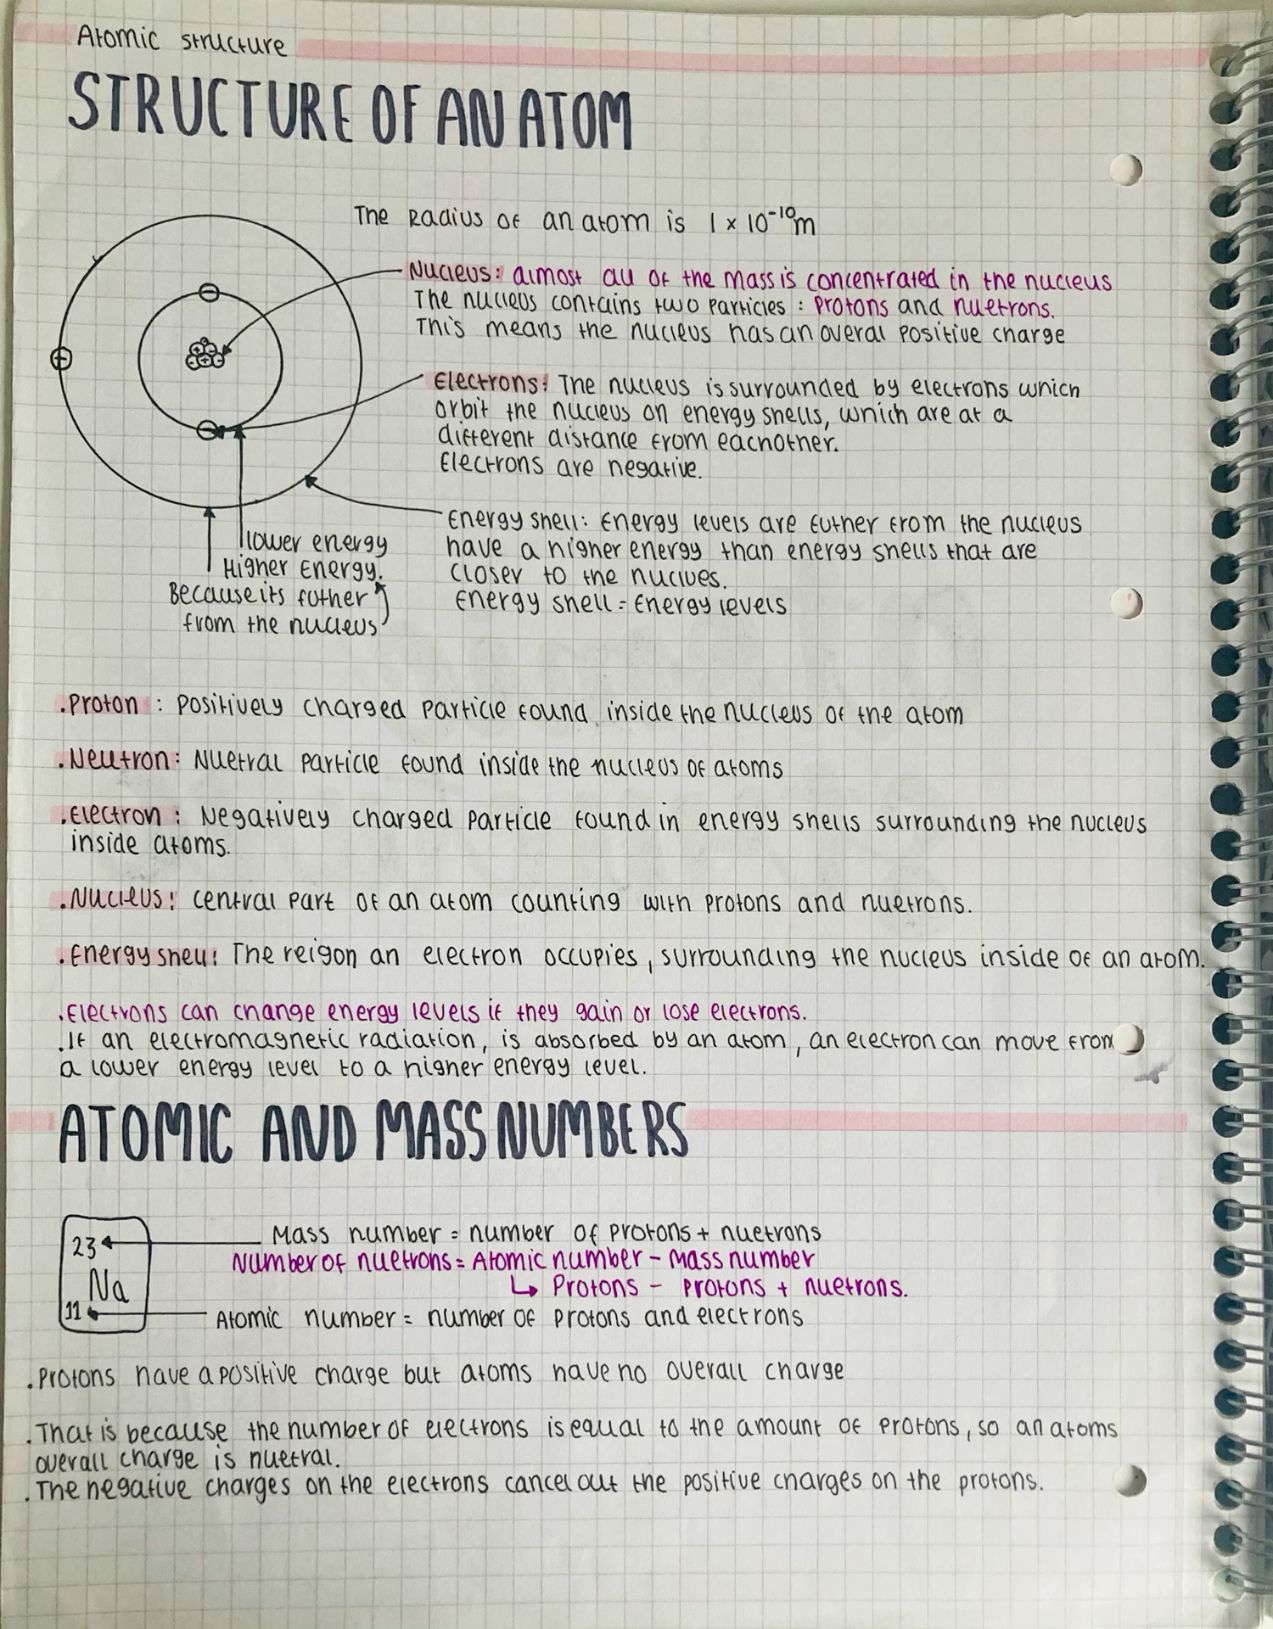 Atomic structure
STRUCTURE OF AN ATOM
The Radius of an atom is 1 x 10⁻¹⁰m
Nucleus: almost all of the mass is concentrated in the nucleus
The nucleus contains two particles : protons and nuetrons.
This means the nucleus has an overal positive charge
Electrons: The nucleus is surrounded by electrons which
orbit the nucleus on energy shells, which are at a
different distance from eachother.
Electrons are negative.
Energy shell: Energy levels are futher from the nucleus
have a higher energy than energy shells that are
closer to the nuclues.
Energy shell = Energy levels
lower energy
Higher Energy.
Because its futher
from the nucleus
.Proton : Positively charged particle found inside the nucleus of the atom
.Neutron: Nuetral particle found inside the nucleus of atoms
.Electron : Negatively charged particle found in energy shells surrounding the nucleus
inside atoms.
.Nucleus: central part of an atom counting with protons and nuetrons.
.Energy shell: The reigon an electron occupies, surrounding the nucleus inside of an atom.
.Electrons can change energy levels if they gain or lose electrons.
.If an electromagnetic radiation, is absorbed by an atom, an electron can move from
a lower energy level to a higher energy level.
ATOMIC AND MASS NUMBERS
23
Na
11
Mass number = number of protons + nuetrons
Number of nuetrons = Atomic number - Mass number
↳ Protons - protons + nuetrons.
Atomic number = number of protons and electrons
.Protons have a positive charge but atoms have no overall charge
.That is because the number of electrons is equal to the amount of protons, so an atoms
overall charge is nuetral.
.The negative charges on the electrons cancel out the positive charges on the protons.